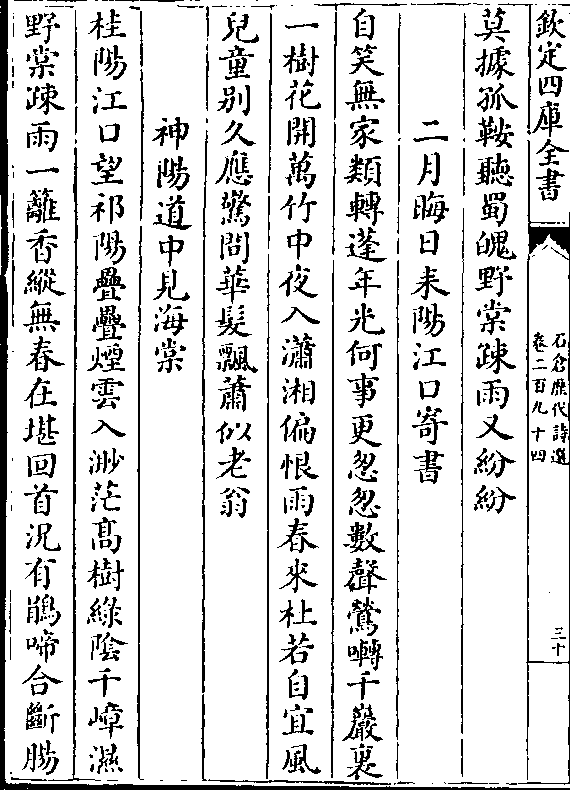 欽定四庫全書
石倉歷代詩選
卷二百九十四
三十
莫據孤鞍聽蜀魄野棠疎雨又紛紛
二月晦日耒陽江口寄書
自笑無家類轉蓬年光何事更忽忽數聲鶯囀千巖裏
一樹花開萬竹中夜入瀟湘偏恨雨春來杜若自宜風
兒童别久應驚問華髮飄蕭似老翁
神陽道中見海棠
桂陽江口望祁陽疊疊煙雲入渺茫髙樹綠陰千嶂濕
野棠疎雨一籬香縱無春在堪回首況有鵑啼合斷腸